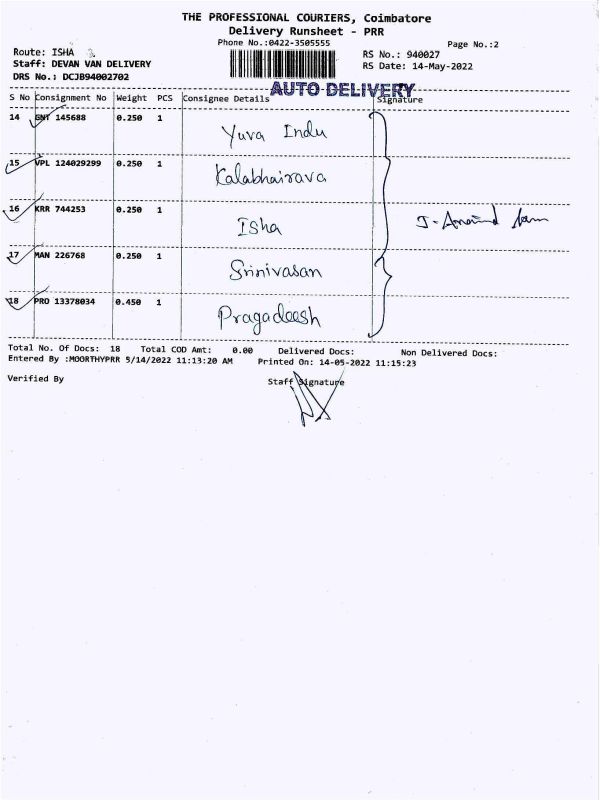 THE PROFESSIONAL COURIERS, Coimbatore
Delivery Runsheet - PRR
Phone No.:0422-3505555
Page No.:2
Route: ISHA
RS No.: 940027
Staff: DEVAN VAN DELIVERY
RS Date: 14-May-2022
DRS No.: DCJB94002702
AUTO DELIVERY
S No Consignment No Weight PCS Consignee Details Signature
14 GNT 145688 0.250 1 Yuva Indu
15 VPL 124029299 0.250 1 Kalabhairava
16 KRR 744253 0.250 1 Isha
17 MAN 226768 0.250 1 Srinivasan
18 PRO 13378034 0.450 1 Pragadeesh
Total No. Of Docs: 18 Total COD Amt: 0.00 Delivered Docs: Non Delivered Docs:
Entered By :MOORTHYPRR 5/14/2022 11:13:20 AM Printed On: 14-05-2022 11:15:23
Verified By Staff Signature